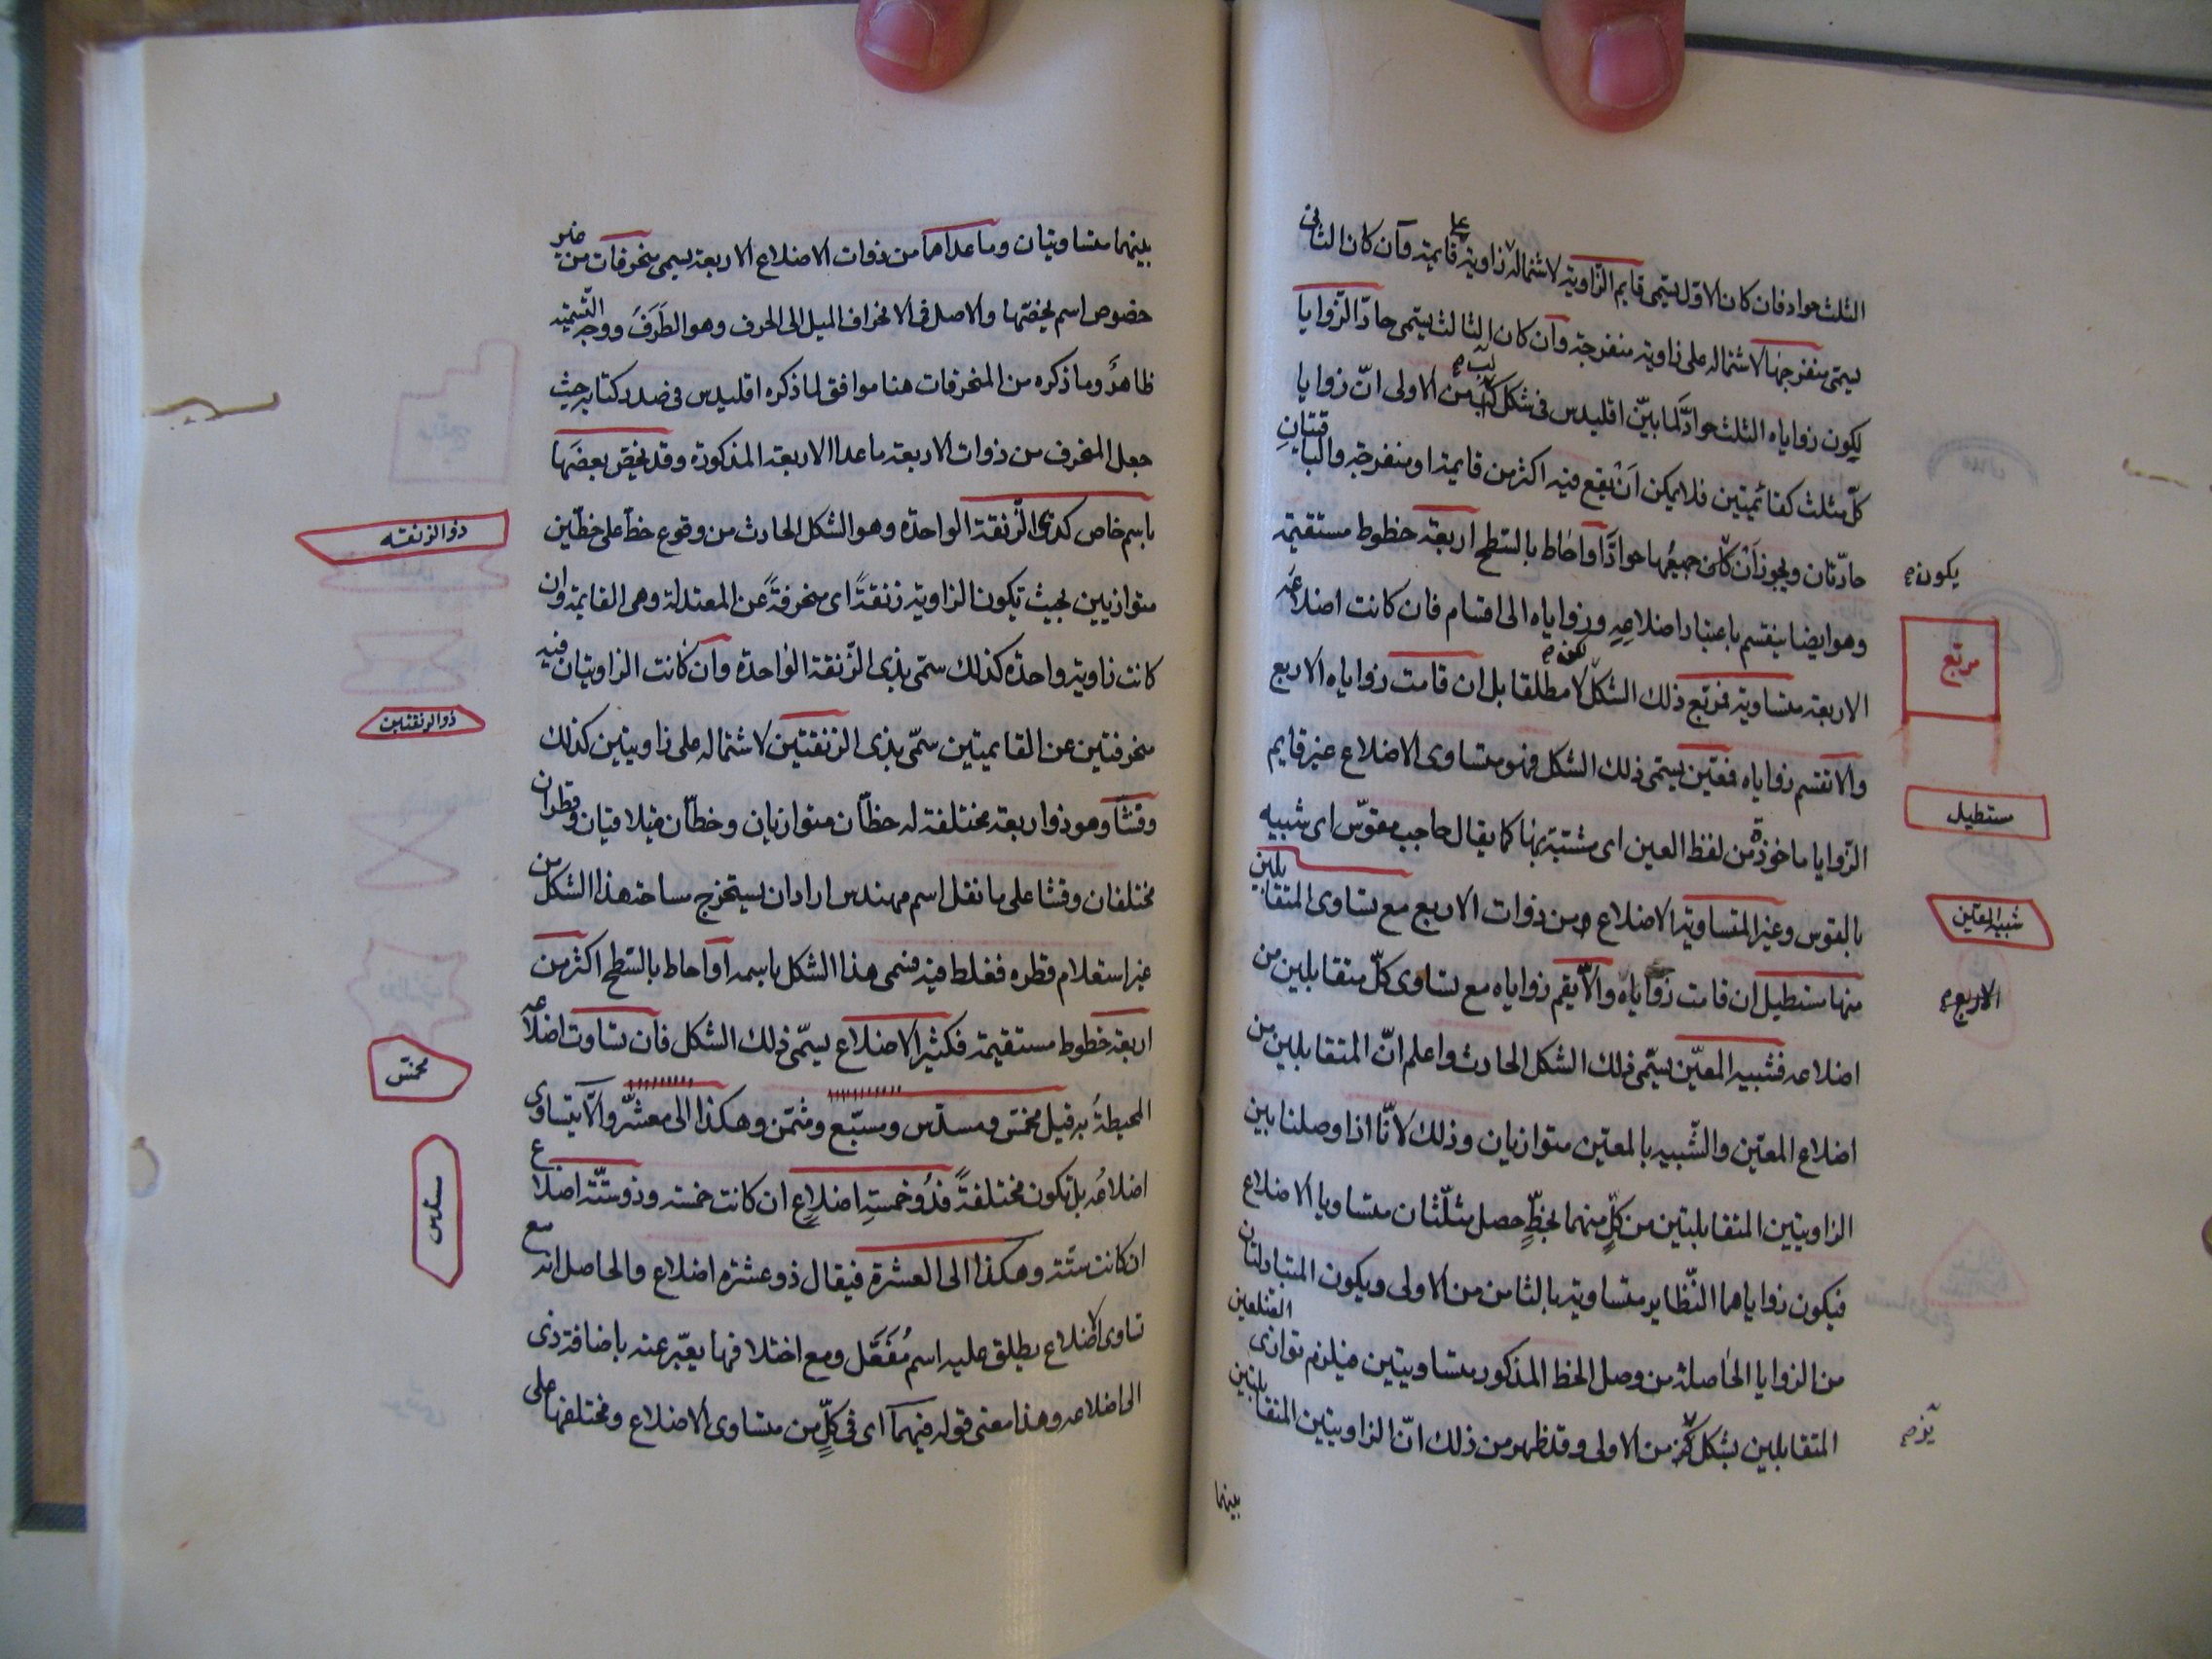 الثلث حواد فان كان الاوّل يسمّى قايم الزّاوية لاشتماله على زاوية قايمة وآن كان الثانى
يسمّى منفرجها لاشتماله على زاوية منفرجة وآن كان الثالث يسمى حادّ الزّوايا
لكون زواياه الثلث حوادّ لما بيّن اقليدس فى شكل لب من الاولى انّ زوايا
كلّ مثلث كقائمتين فلا يمكن اَنْ يقع فيه اكثر من قايمة او منفرجة والباقيتانِ
حادّتان ويجوز اَنْ يكون جميعُها حوادَّ آو احاط بالسّطح اربعة خطوط مستقيمة
وهو ايضا ينقسم باعتبار اضلاعهِ وزواياه الى اقسام فان كانت اضلاعه
الاربعة متساوية فمربّع ذلك الشكل لا مطلقا بل ان قامت زواياه الاربع
والا تقسم زواياه فمعيّن يسمّى ذلك الشكل فهو متساوى الاضلاع غير قايم
الزّوايا ماخوذة من لفظ العين اى مشتبة بها كما يقال حاجب مقوّس اى شبيه
بالقوس وغير المتساوية الاضلاع من ذوات الاربع مع تساوى المتقابلين
منها مستطيل ان قامت زواياه والّا يقم زواياه مع تساوى كلّ متقابلين من
اضلاعه فشبيه المعيّن يسمّى ذلك الشكل الحادث واعلم انّ المتقابلين من
اضلاع المعيّن والشّبيه بالمعيّن متوازيان وذلك لانّا اذا وصلنا بين
الزاويتين المتقابلتين من كلٍّ منهما بخطٍّ حصل مثلّثان متساويا الاضلاع
فيكون زواياهما النّظاير متساوية بالثامن من الاولى ويكون المتبادلتان
من الزوايا الحاصلة من وصل الخط المذكور متساويتين فيلزم توازى الضلعين
المتقابلين بشكل كز من الاولى وقد ظهر من ذلك انّ الزاويتين المتقابلتين
بينهما
يكون
مربّع
مستطيل
شبيه المعيّن
الاربع
بينهما متساويتان وما عداها من ذوات الاضلاع الاربعة يسمى منحرفات من غير
خصوص اسم يخصّها والاصل فى الانحراف الميل الى الحرف وهو الطَرَفَ ووجه التّسمية
ظاهرٌ وما ذكره من المنحرفات هنا موافق لما ذكره اقليدس فى صدر كتابه حيث
جعل المنحرف من ذوات الاربعة ما عدا الاربعة المذكورة وقد يخصّ بعضَها
باسم خاص كذى الزّنقة الواحدة وهو الشكل الحادث من وقوع خطّ على خطّين
متوازيين بحيث تكون الزاوية زنقةً اى منحرفةً عن المعتدلة وهى القايمة وان
كانت زاوية واحدة كذلك سمّى بذى الزّنقة الواحدة وآن كانت الزاويتان فيه
منحرفتين عن القايمتين سمّى بذى الزنقتين لاشتماله على زاويتين كذلك
وقثّا وهو ذو اربعة مختلفة له خطّان متوازيان وخطّان متلاقيان وقطران
مختلفان وقثا على ما نقل اسم مهندس اراد ان يستخرج مساحة هذا الشكل من
غير استعلام قطره فغلط فيه فسمى هذا الشكل باسمه آو احاط بالسّطح اكثر من
اربعة خطوط مستقيمة فكثير الاضلاع يسمّى ذلك الشكل فان تساوت اضلاعه
المحيطة به قيل مخمّس ومسدّس ومسبّع ومثمّن وهكذا الى معشّر والّا يتساوى
اضلاعُه بل تكون مختلفةً فذُو خمسةِ اضلاعٍ ان كانت خمسة وذو ستّة اضلاع
ان كانت ستّة وهكذا الى العشرة فيقال ذو عشرة اضلاع والحاصل انه مع
تساوى الاضلاع يطلق عليه اسم مُفَعَّل ومع اختلافها يعبّر عنه باضافة ذى
الى اضلاعه وهذا معنى قوله فيهما اى فى كلٍّ من متساوى الاضلاع ومختلفها على
ذو الزنقة
ذو الزنقتين
مخمّس
مسدّس